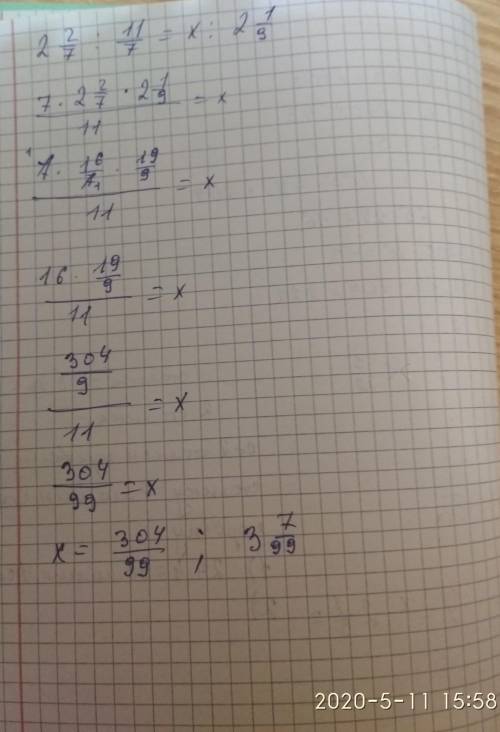 2 2/7 : 11/7 = x : 2 1/9
7 · 2 2/7 · 2 1/9 / 11 = x
7 · 16/7 · 19/9 / 11 = x
16 · 19/9 / 11 = x
304/9 / 11 = x
304/99 = x
x = 304/99 ; 3 7/99
2020-5-11 15:58